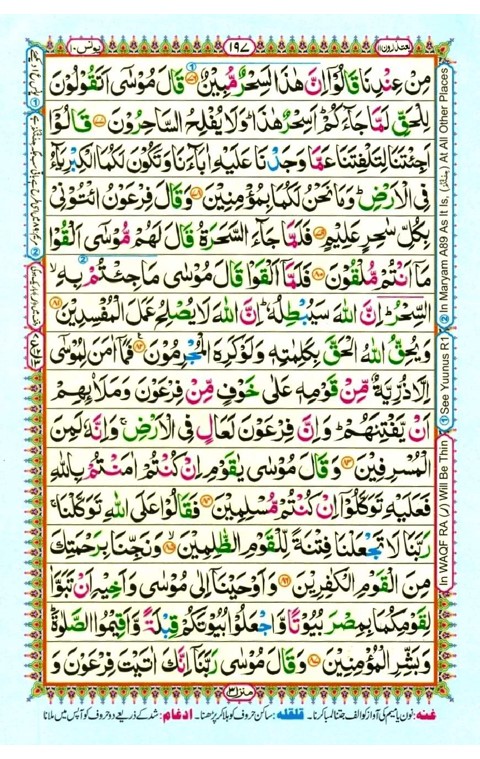 يعتذرون ١١
١٩٧
يونس ١٠
مِنْ عِنْدِنَا قَالُوْۤا اِنَّ هٰذَا لَسِحْرٌ مُّبِيْنٌ قَالَ مُوْسٰۤى اَتَقُوْلُوْنَ
لِلْحَقِّ لَمَّا جَآءَكُمْ اَسِحْرٌ هٰذَا وَلَا يُفْلِحُ السَّاحِرُوْنَ قَالُوْۤا
اَجِئْتَنَا لِتَلْفِتَنَا عَمَّا وَجَدْنَا عَلَيْهِ اٰبَآءَنَا وَتَكُوْنَ لَكُمَا الْكِبْرِيَآءُ
فِى الْاَرْضِ وَمَا نَحْنُ لَكُمَا بِمُؤْمِنِيْنَ وَقَالَ فِرْعَوْنُ ائْتُوْنِىْ
بِكُلِّ سٰحِرٍ عَلِيْمٍ فَلَمَّا جَآءَ السَّحَرَةُ قَالَ لَهُمْ مُّوْسٰۤى اَلْقُوْا
مَاۤ اَنْتُمْ مُّلْقُوْنَ فَلَمَّاۤ اَلْقَوْا قَالَ مُوْسٰى مَا جِئْتُمْ بِهِ
السِّحْرُ اِنَّ اللّٰهَ سَيُبْطِلُهٗ اِنَّ اللّٰهَ لَا يُصْلِحُ عَمَلَ الْمُفْسِدِيْنَ
وَيُحِقُّ اللّٰهُ الْحَقَّ بِكَلِمٰتِهٖ وَلَوْ كَرِهَ الْمُجْرِمُوْنَ فَمَاۤ اٰمَنَ لِمُوْسٰۤى
اِلَّا ذُرِّيَّةٌ مِّنْ قَوْمِهٖ عَلٰى خَوْفٍ مِّنْ فِرْعَوْنَ وَمَلَا۟ئِهِمْ
اَنْ يَّفْتِنَهُمْ وَاِنَّ فِرْعَوْنَ لَعَالٍ فِى الْاَرْضِ وَاِنَّهٗ لَمِنَ
الْمُسْرِفِيْنَ وَقَالَ مُوْسٰى يٰقَوْمِ اِنْ كُنْتُمْ اٰمَنْتُمْ بِاللّٰهِ
فَعَلَيْهِ تَوَكَّلُوْۤا اِنْ كُنْتُمْ مُّسْلِمِيْنَ فَقَالُوْا عَلَى اللّٰهِ تَوَكَّلْنَا
رَبَّنَا لَا تَجْعَلْنَا فِتْنَةً لِّلْقَوْمِ الظّٰلِمِيْنَ وَنَجِّنَا بِرَحْمَتِكَ
مِنَ الْقَوْمِ الْكٰفِرِيْنَ وَاَوْحَيْنَاۤ اِلٰى مُوْسٰى وَاَخِيْهِ اَنْ تَبَوَّاٰ
لِقَوْمِكُمَا بِمِصْرَ بُيُوْتًا وَّاجْعَلُوْا بُيُوْتَكُمْ قِبْلَةً وَّاَقِيْمُوا الصَّلٰوةَ
وَبَشِّرِ الْمُؤْمِنِيْنَ وَقَالَ مُوْسٰى رَبَّنَاۤ اِنَّكَ اٰتَيْتَ فِرْعَوْنَ وَ
منزل ٣
غنه: نون یا میم کی آواز کو الف جتنا لمبا کرنا۔ قلقله: ساکن حروف کو ہلا کر پڑھنا۔ ادغام: شد کے ذریعے دو حروف کو آپس میں ملانا
In WAQF RA (ر) Will Be Thin ① See Yuunus R1 ② In Maryam A89 As It Is, (جئتم) At All Other Places